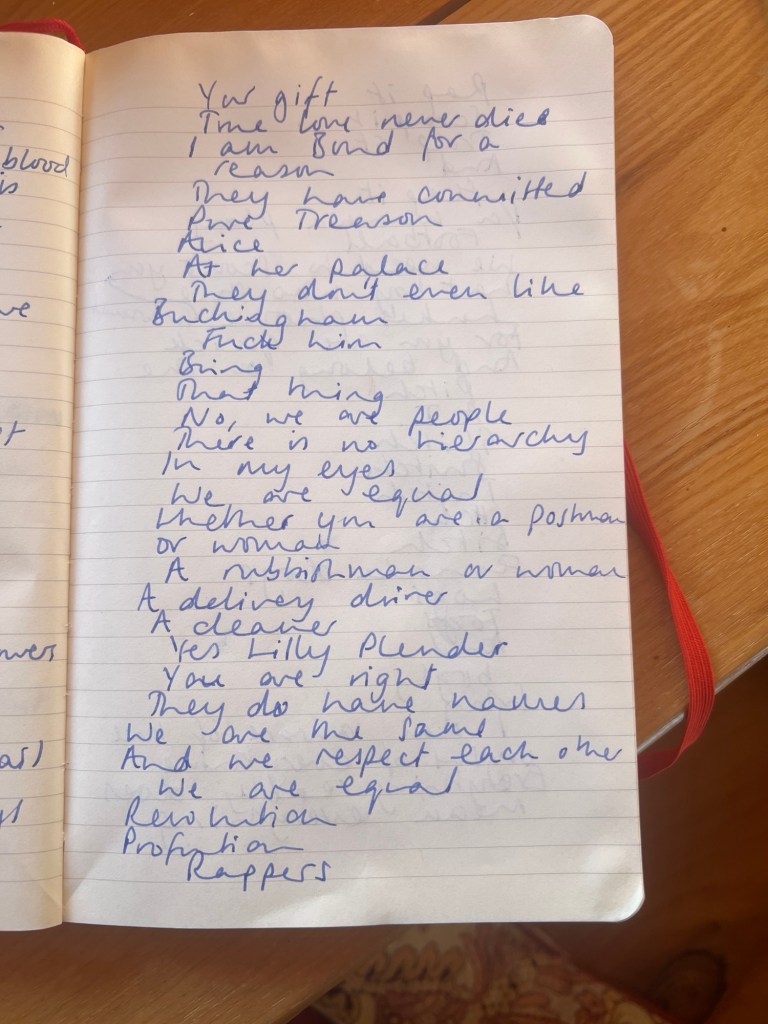 blood
is
ve
Your gift
True love never dies
I am Bond for a
reason
They have committed
Pure Treason
Alice
At her palace
They don't even like
Buckingham
Fuck him
Bring
That thing
No, we are people
There is no hierarchy
In my eyes
We are equal
Whether you are a postman
or woman
A rubbishman or woman
A delivery driver
A cleaner
Yes Lilly Plender
You are right
They do have names
We are the same
And we respect each other
We are equal
Revolution
Rappers